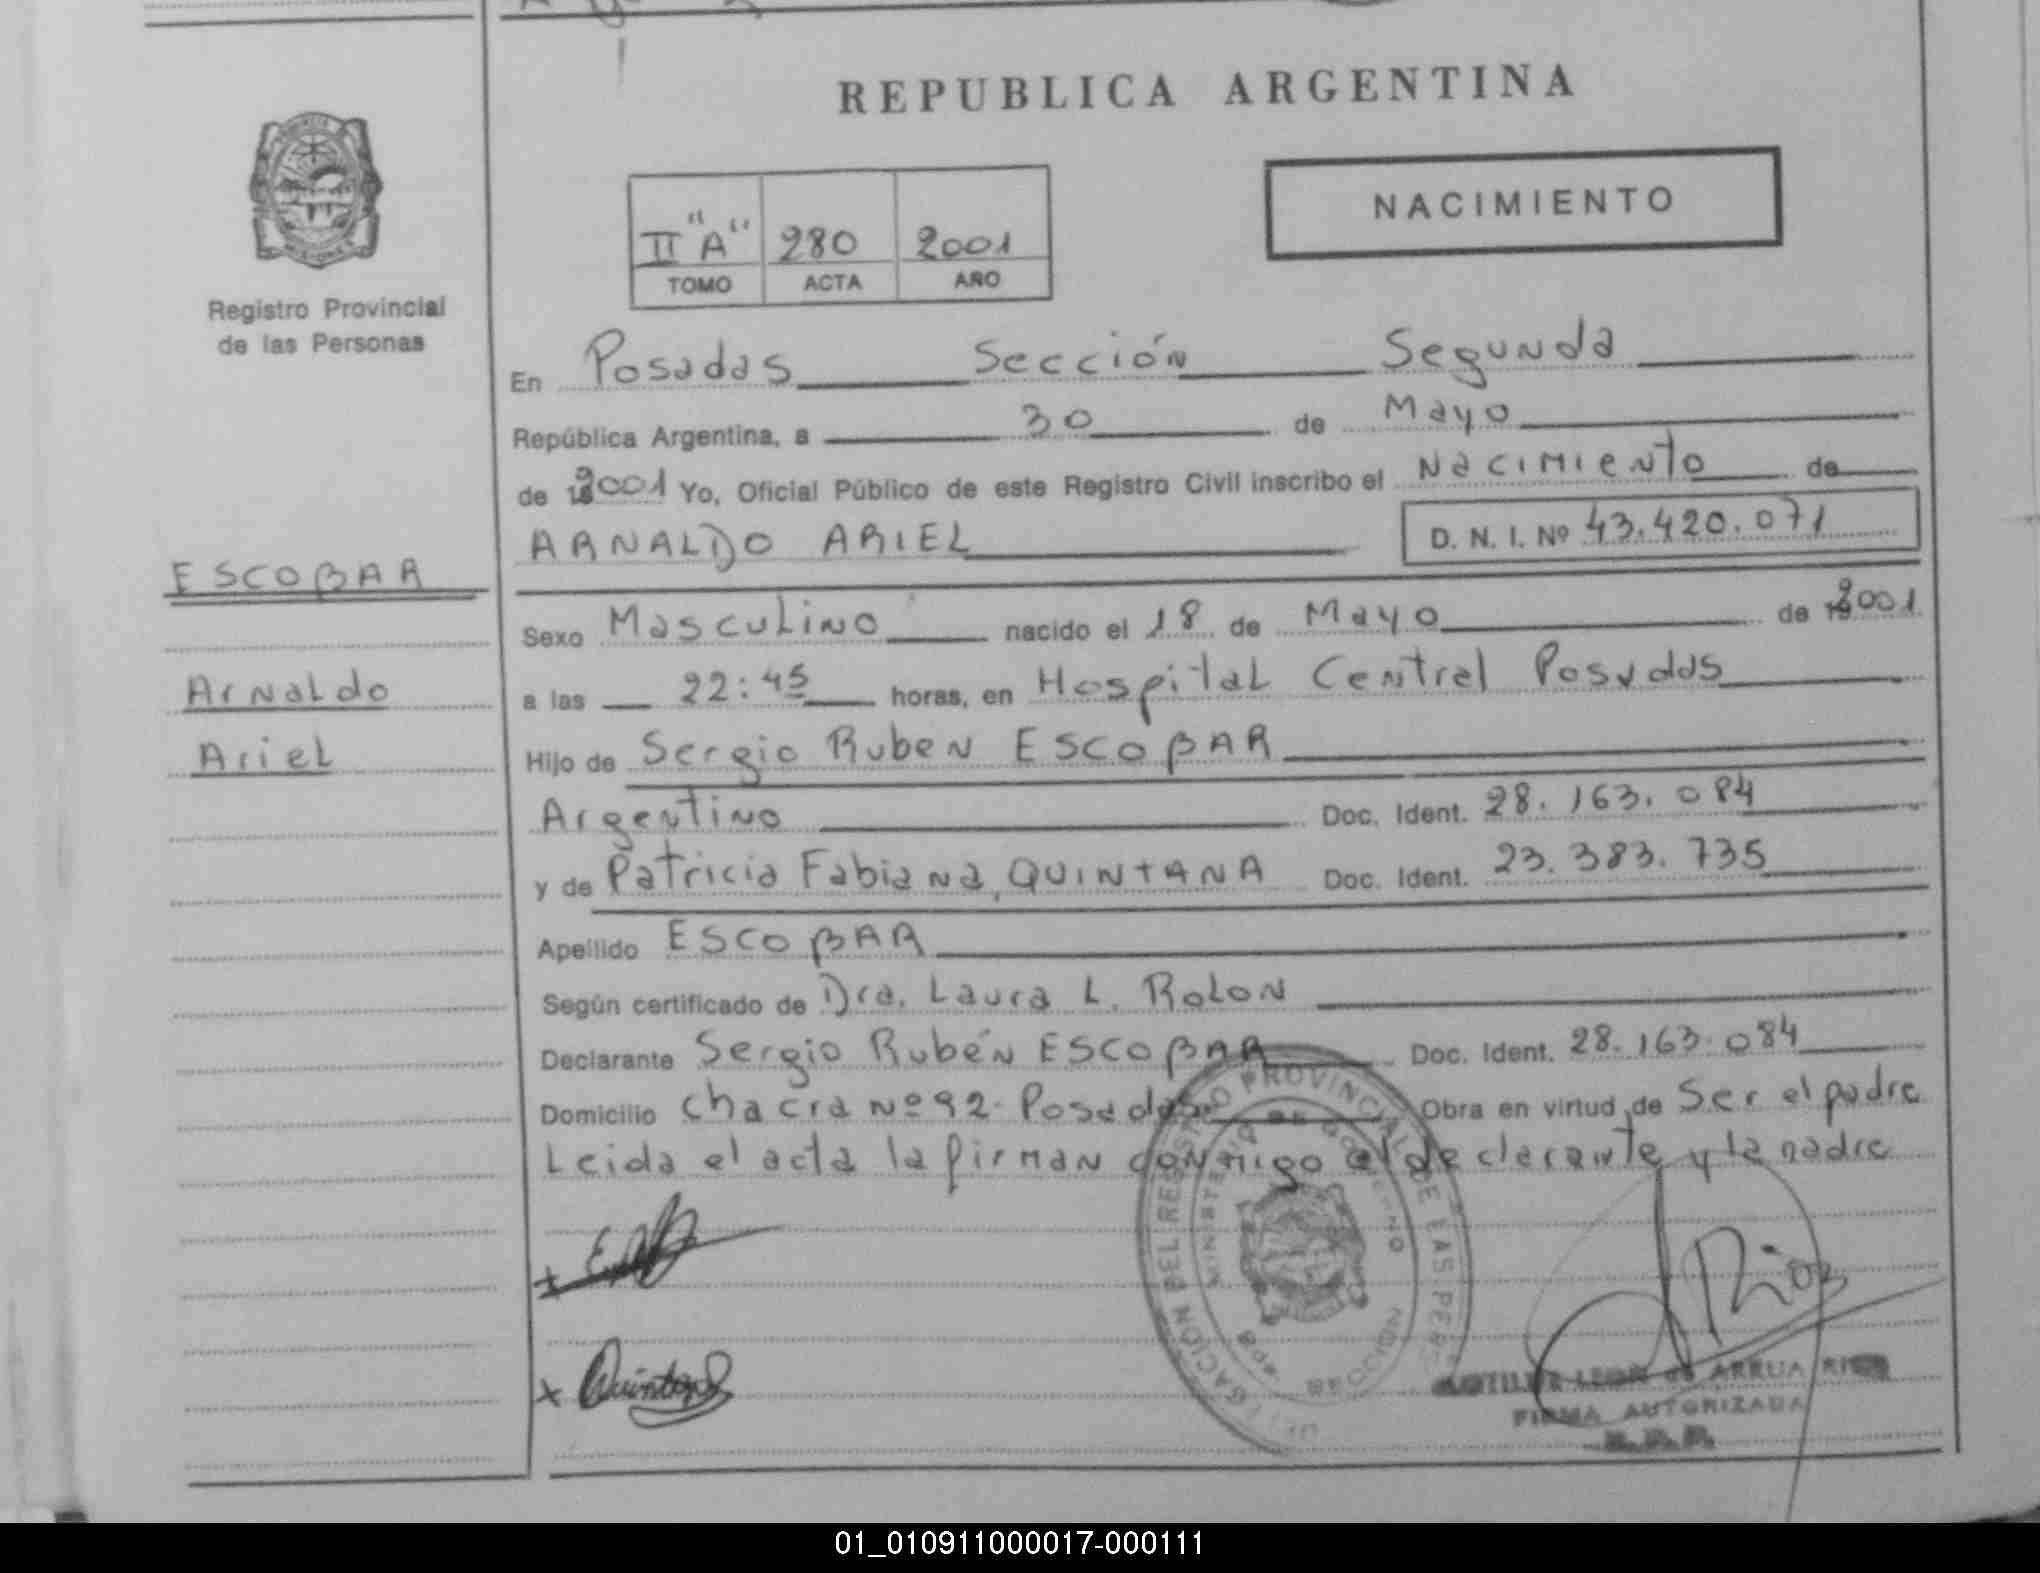 REPUBLICA ARGENTINA
NACIMIENTO
II "A" 280 2001
TOMO ACTA AÑO
Registro Provincial
de las Personas
En Posadas Sección Segunda
República Argentina, a 30 de Mayo
de 2001 Yo, Oficial Público de este Registro Civil inscribo el Nacimiento de
ARNALDO ARIEL D. N. I. Nº 43.420.071
ESCOBAR
Arnaldo
Ariel
Sexo Masculino nacido el 18 de Mayo de 2001
a las 22:45 horas, en Hospital Central Posadas
Hijo de Sergio Ruben ESCOBAR
Argentino Doc. Ident. 28.163.084
y de Patricia Fabiana, QUINTANA Doc. Ident. 23.383.735
Apellido ESCOBAR
Según certificado de Dra. Laura L. Rolon
Declarante Sergio Rubén ESCOBAR Doc. Ident. 28.163.084
Domicilio chacra nº 92 - Posadas Obra en virtud de Ser el padre
Leida el acta la firman conmigo el declarante y la madre
DELEGACIÓN DEL REGISTRO PROVINCIAL DE LAS PERS
MINISTERIO DE GOBIERNO
Quintana
Rios
LEON de ARRUA RIOS
FIRMA AUTORIZADA
R.P.P.
01_010911000017-000111